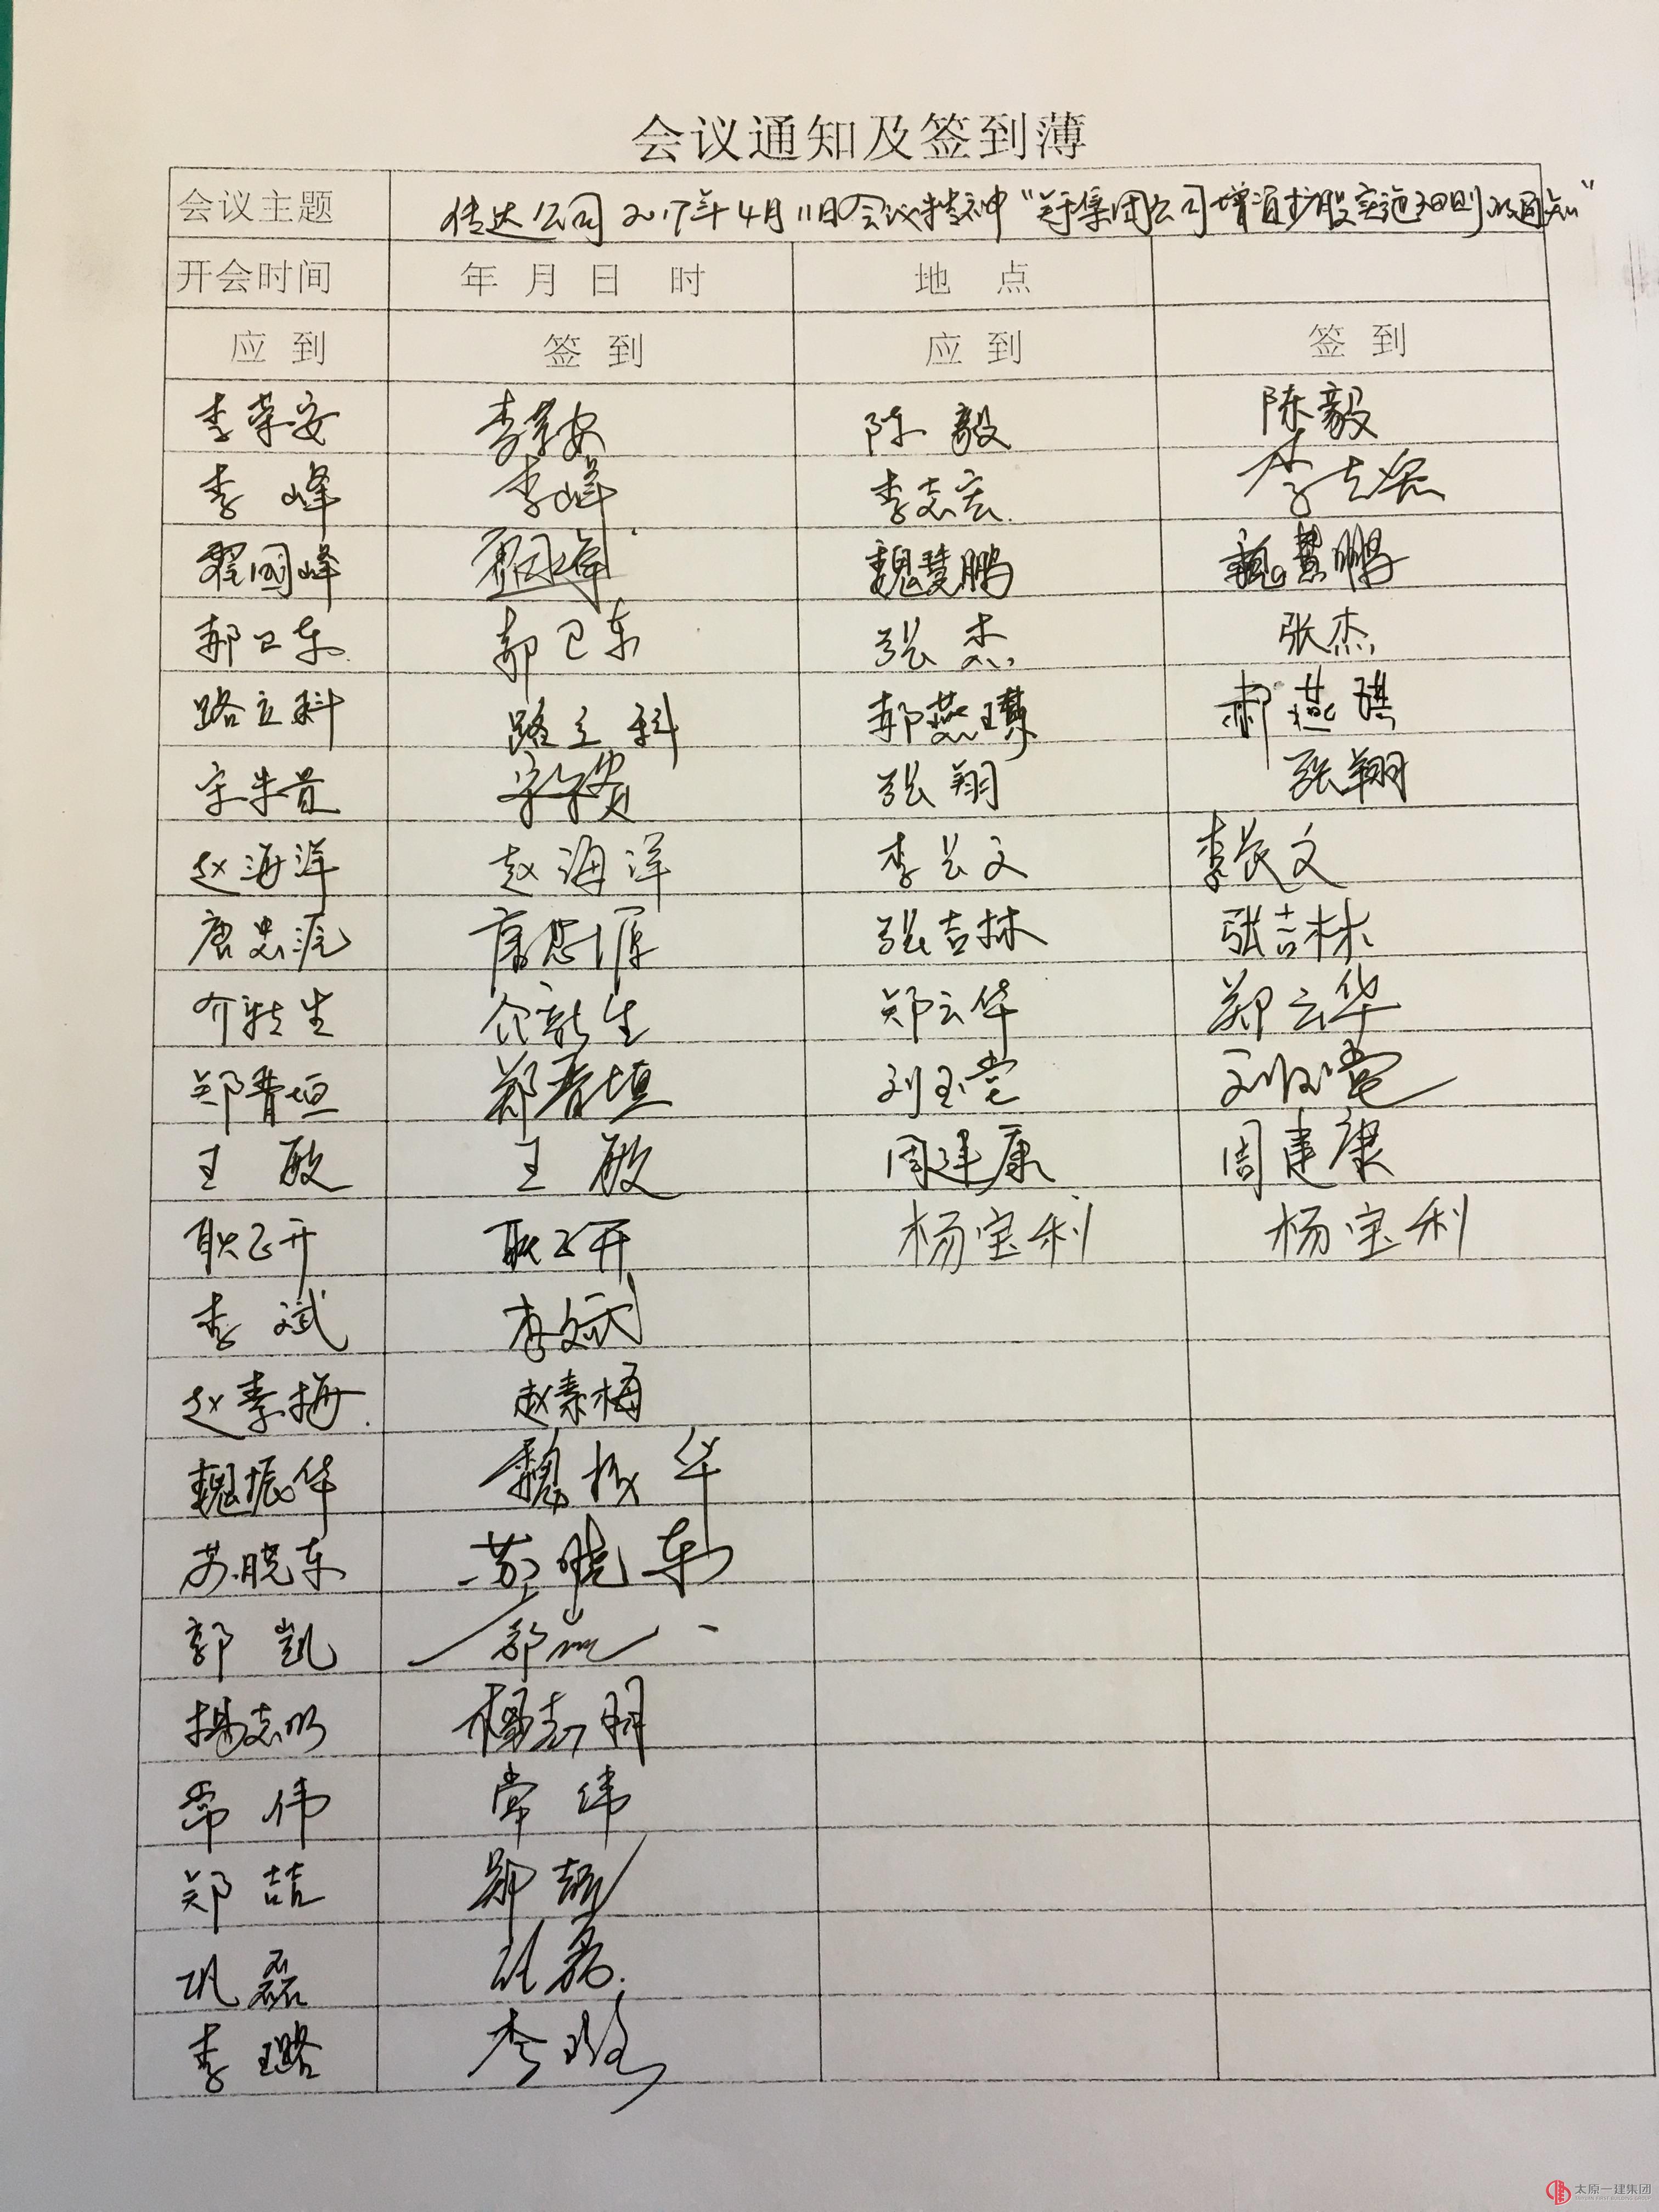 会议通知及签到薄
会议主题 传达公司2017年4月11日会议精神"关于集团公司增资扩股实施细则的通知"
开会时间 年 月 日 时 地 点
应 到 签 到 应 到 签 到
李荣安 李荣安 陈毅 陈毅
李峰 李峰 李志宏 李志宏
翟国峰 魏慧鹏 魏慧鹏
郝卫东 郝卫东 张杰 张杰
路立科 路立科 郝燕琪 郝燕琪
宋朱贵 张翔 张翔
赵海洋 赵海洋 李长文 李长文
唐忠 唐忠 张吉林 张吉林
介新生 介新生 郑云华 郑云华
郑晋垣 郑晋垣 刘玉堂 刘玉堂
王敏 王敏 周建康 周建康
耿飞开 耿飞开 杨宝利 杨宝利
李斌 李斌
赵素梅 赵素梅
魏振华 魏振华
苏晓东 苏晓东
郭凯 郭凯
杨志明 杨志明
常伟 常伟
郑喆 郑喆
巩磊 巩磊
李璐 李璐
太原一建集团